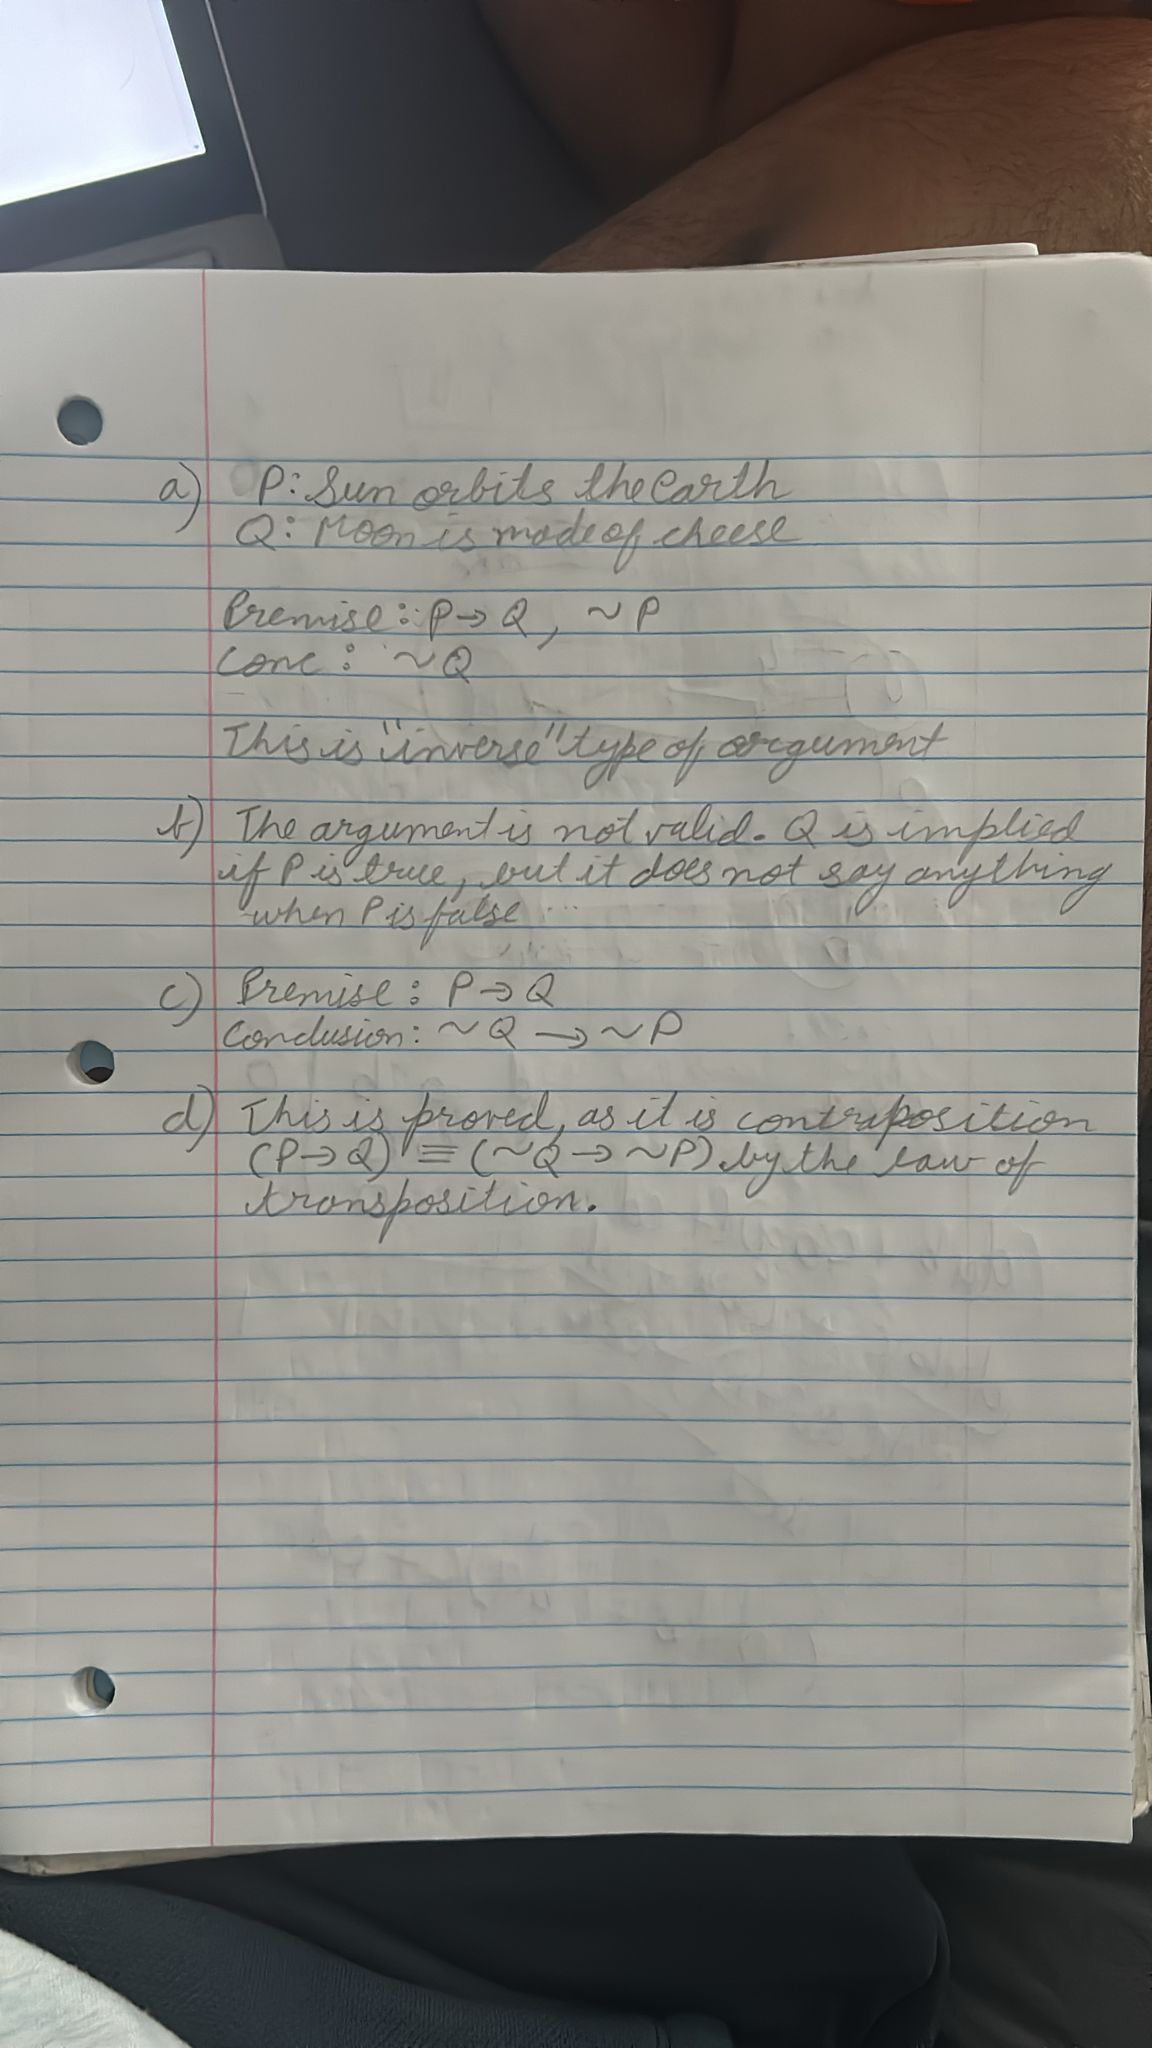 a) P: Sun orbits the Earth
Q: Moon is made of cheese
Premise: P → Q, ~ P
Conc: ~ Q
This is "inverse" type of argument
b) The argument is not valid. Q is implied
if P is true, but it does not say anything
when P is false
c) Premise: P → Q
Conclusion: ~ Q → ~ P
d) This is proved, as it is contraposition
(P → Q) ≡ (~Q → ~P) by the law of
transposition.